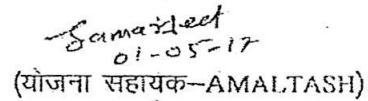 Samarjeet
01-05-17
(योजना सहायक–AMALTASH)